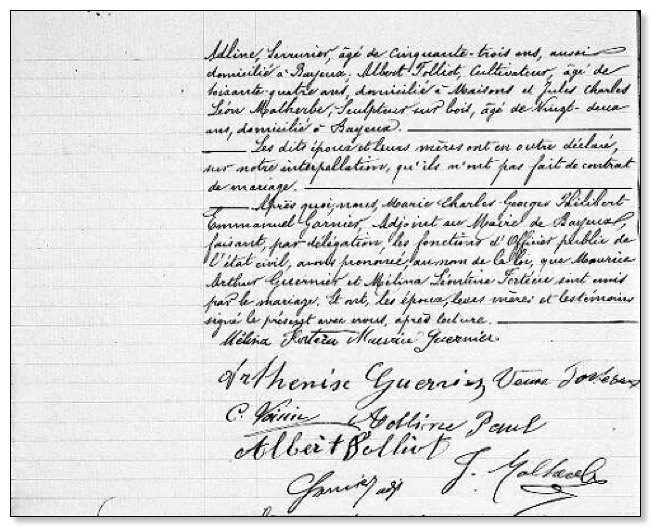 Adline, Serrurier, âgé de cinquante-trois ans, aussi
domicilié à Bayeux. Albert Folliot, Cultivateur, âgé de
soixante-quatre ans, domicilié à Maisons et Jules Charles
Léon Malherbe, Sculpteur sur bois, âgé de vingt-deux
ans, domicilié à Bayeux.
Les dits époux et leurs mères ont en outre déclaré,
sur notre interpellation, qu'ils n'ont pas fait de contrat
de mariage.
Après quoi, nous, Marie Charles-Georges Philibert
Emmanuel Garnier, Adjoint au Maire de Bayeux,
faisant, par délégation, les fonctions d'Officier public de
l'état civil, avons prononcé, au nom de la loi, que Maurice
Arthur Guernier et Mélina Léontine Forteru sont unis
par le mariage. Et ont, les époux, leurs mères et les témoins
signé le présent avec nous, après lecture.
Mélina Forteru Maurice Guernier
Arthenise Guernier Veuve
C. Voisin Adline Paul
Albert Folliot
Garnier adj J. Malherbe